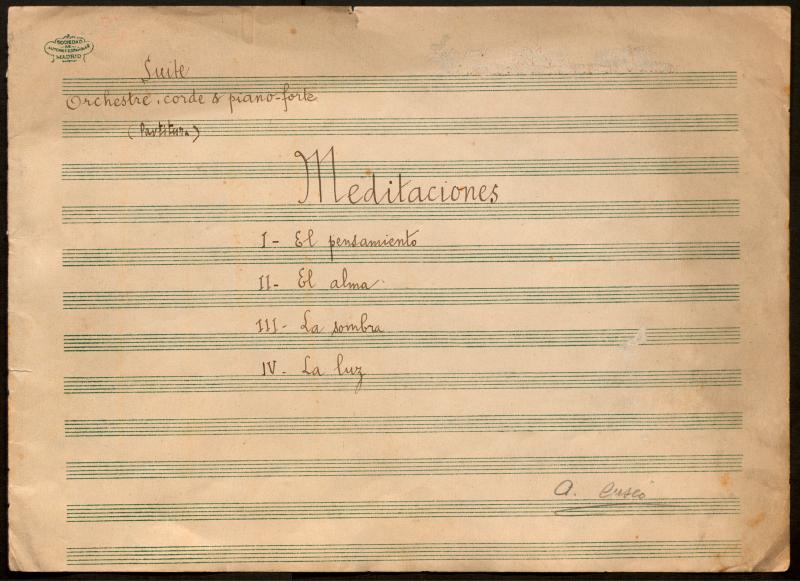 SOCIEDAD
DE
AUTORES ESPAÑOLES
MADRID
Suite
Orchestre, corde & piano-forte
(Partitura)
Meditaciones
I - El pensamiento
II - El alma.
III - La sombra
IV - La luz
A. Cuscó